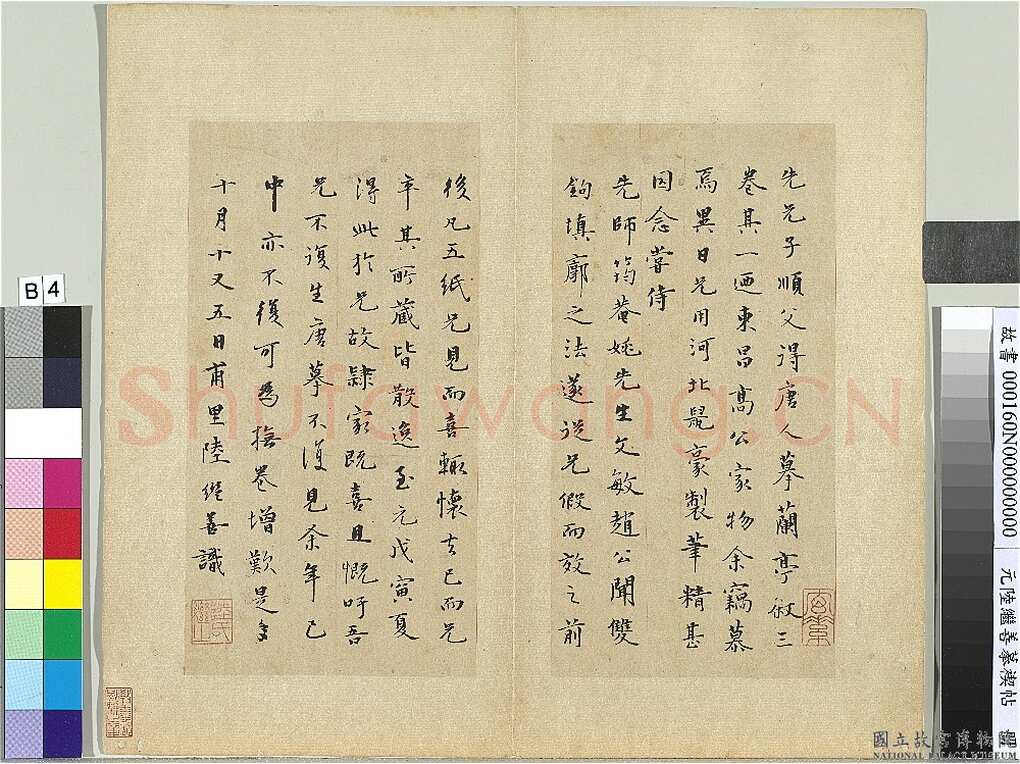 先兄子順父得唐人摹蘭亭敘三
卷其一迺東昌高公家物余竊慕
焉異日兄用河北鼠豪製筆精甚
因念嘗侍
先師筠菴姚先生文敏趙公聞雙
鉤填廓之法遂從兄假而效之前
後凡五紙兄見而喜輒懷去已而兄
卒其所藏皆散逸至元戊寅夏
得此於兄故隸家既喜且慨吁吾
兄不復生唐摹不復見余年已
中亦不復可為撫卷增歎是年
十月十又五日甫里陸繼善識
陸氏
B 4
Shufawang.CN
故書 000160N000000000
元陸繼善摹禊帖
國立故宮博物院
NATIONAL PALACE MUSEUM